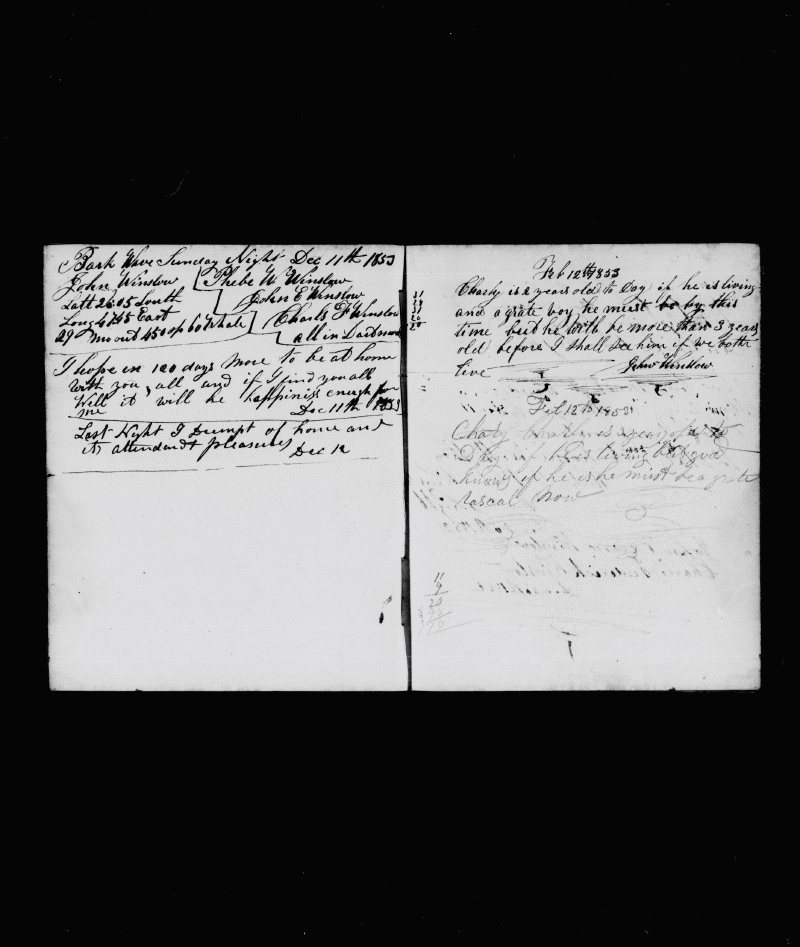 Bark Wave Sunday Night Dec 11th 1853
John Winslow Phebe W Winslow
Latt 26:05 South John E Winslow
Long 41:45 East Charls F Winslow
29 Mo out 450 sp 60 Whale all in Dartmouth
I hope in 120 days more to be at home
with you all and if I find you all
Well it will be happiness enugh for
me Dec 11th 1853
Last Night I Dreampt of home and
its attendant pleasures
Dec 12
Feb 12th 1853
Charly is 2 years old to Day if he is living
and a grate boy he must be by this
time but he will be more than 3 years
old before I shall see him if we both
live John Winslow
31
20
20
Feb 12th 1853
Charly is 2 years old to
Day if he is living but god
knows if he is he must be a grate
rascal Now
11
9
20